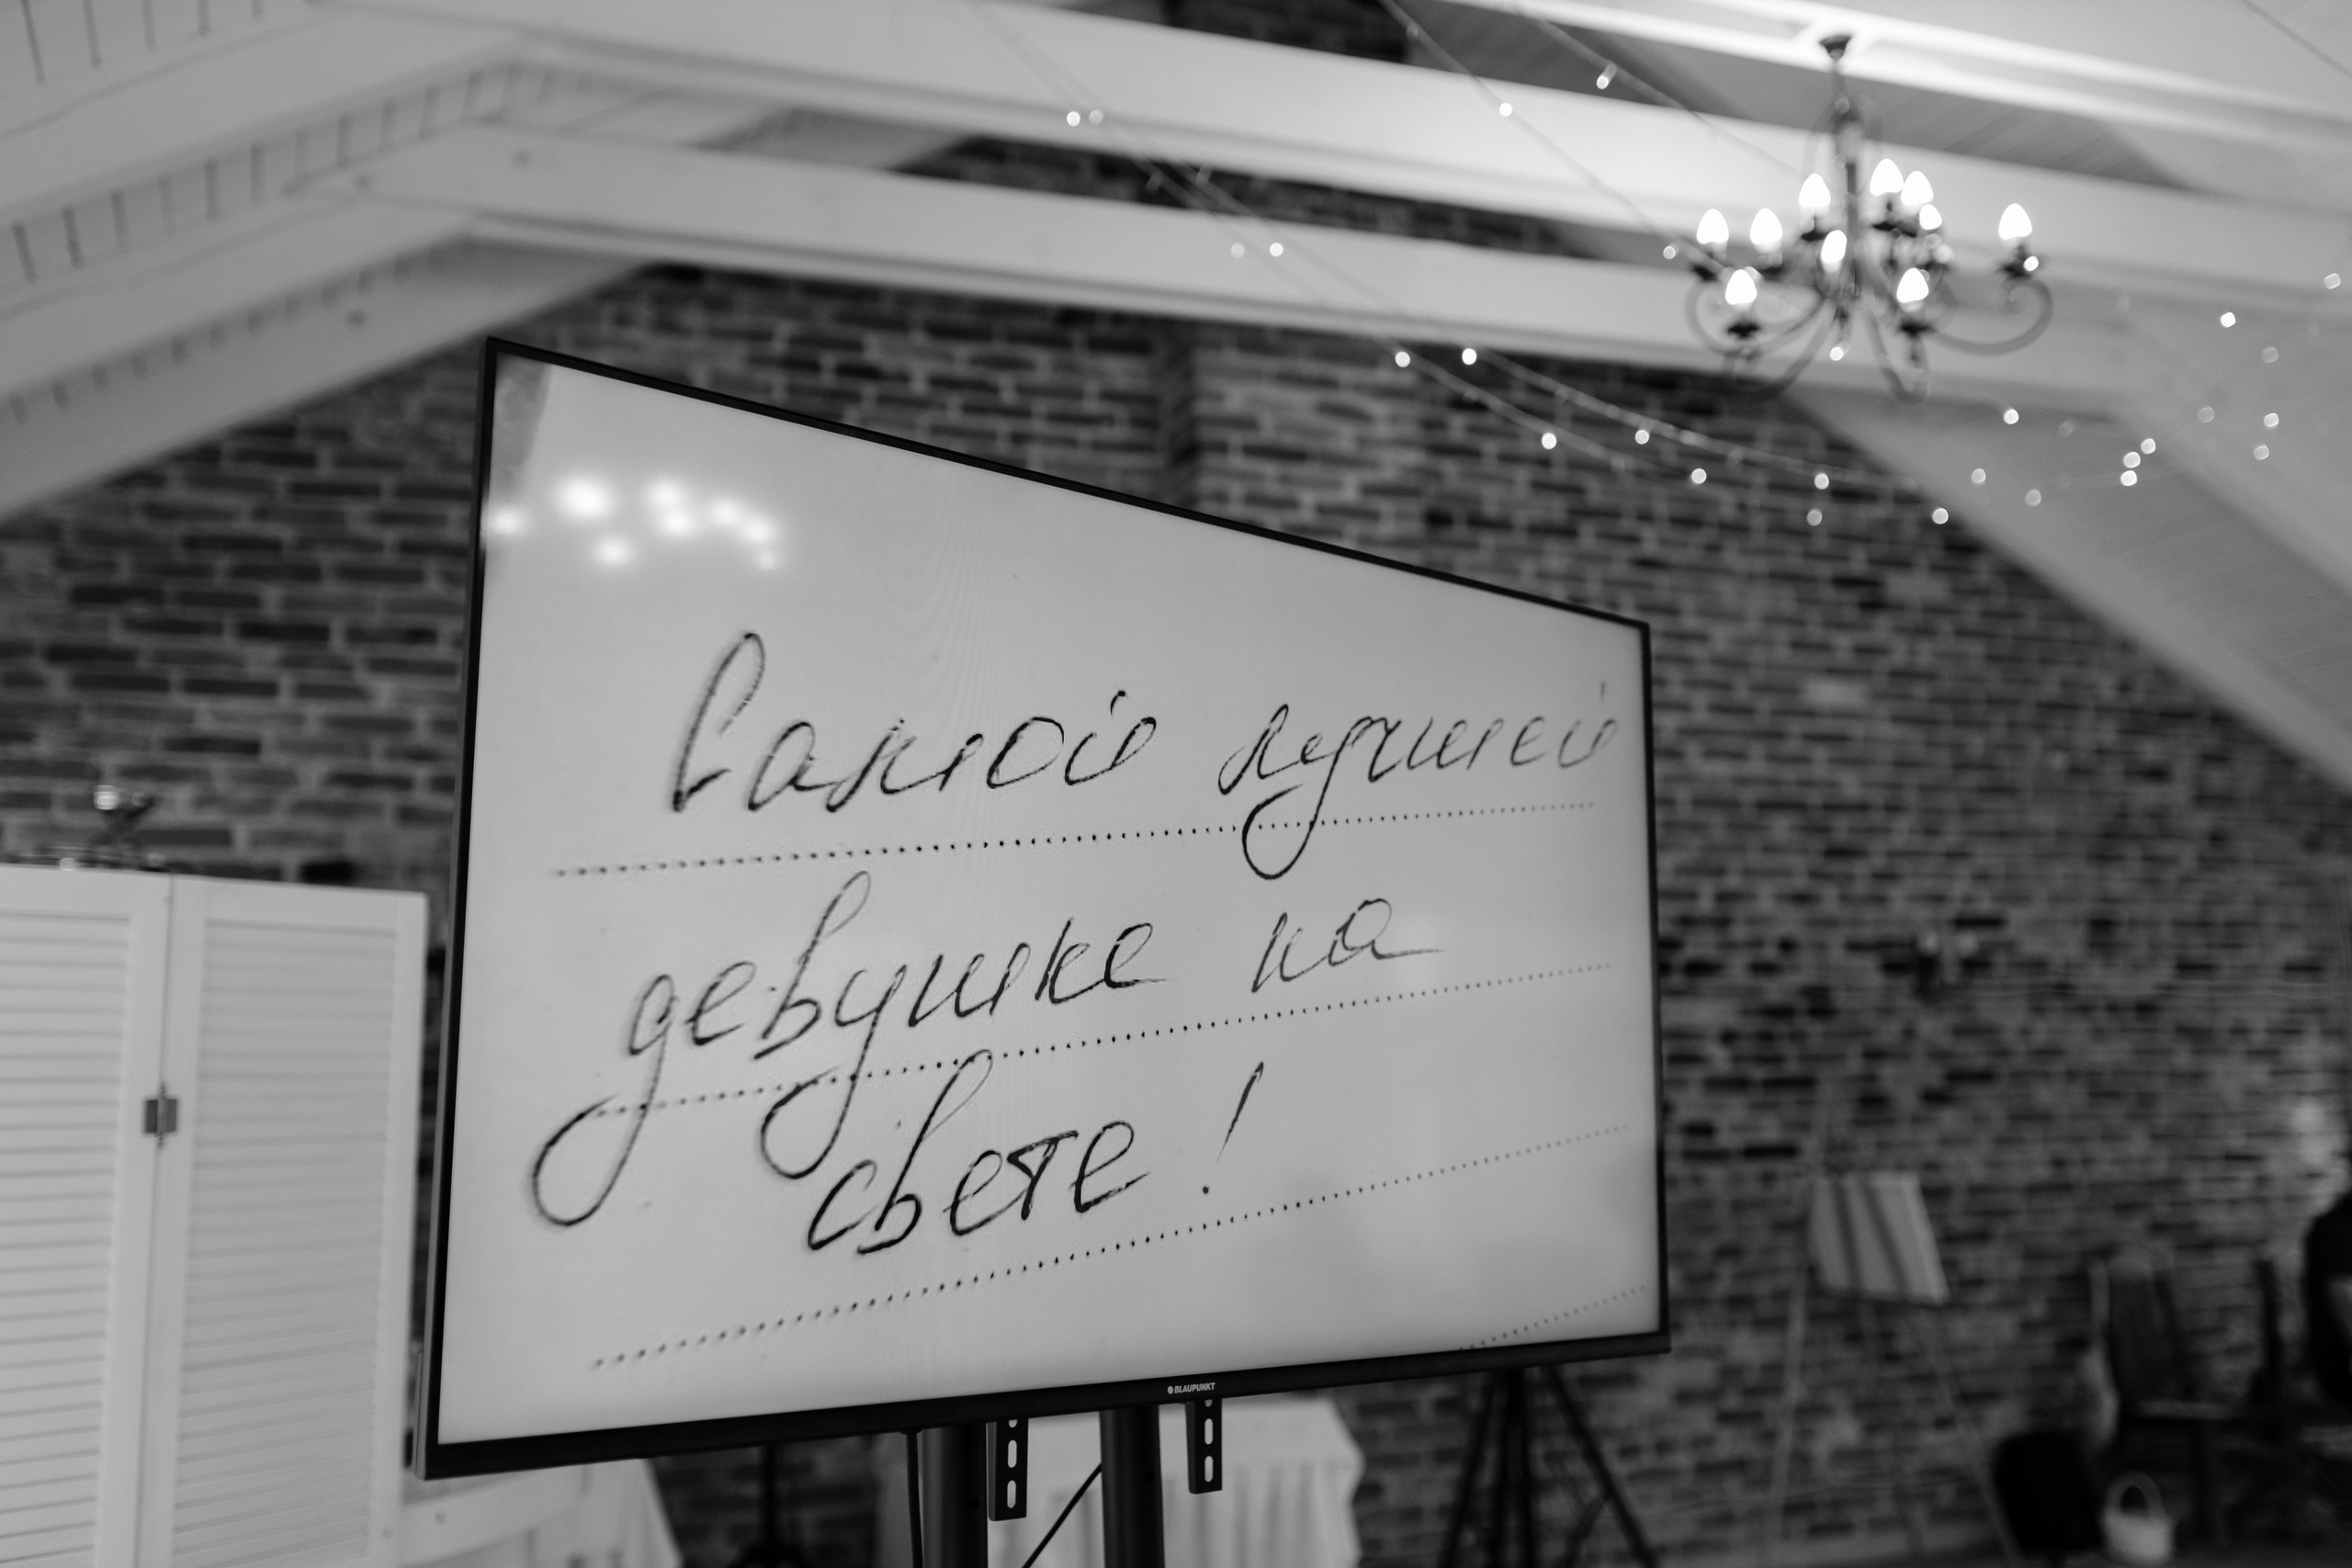 Самой лучшей
девушке на
свете!
BLAUPUNKT